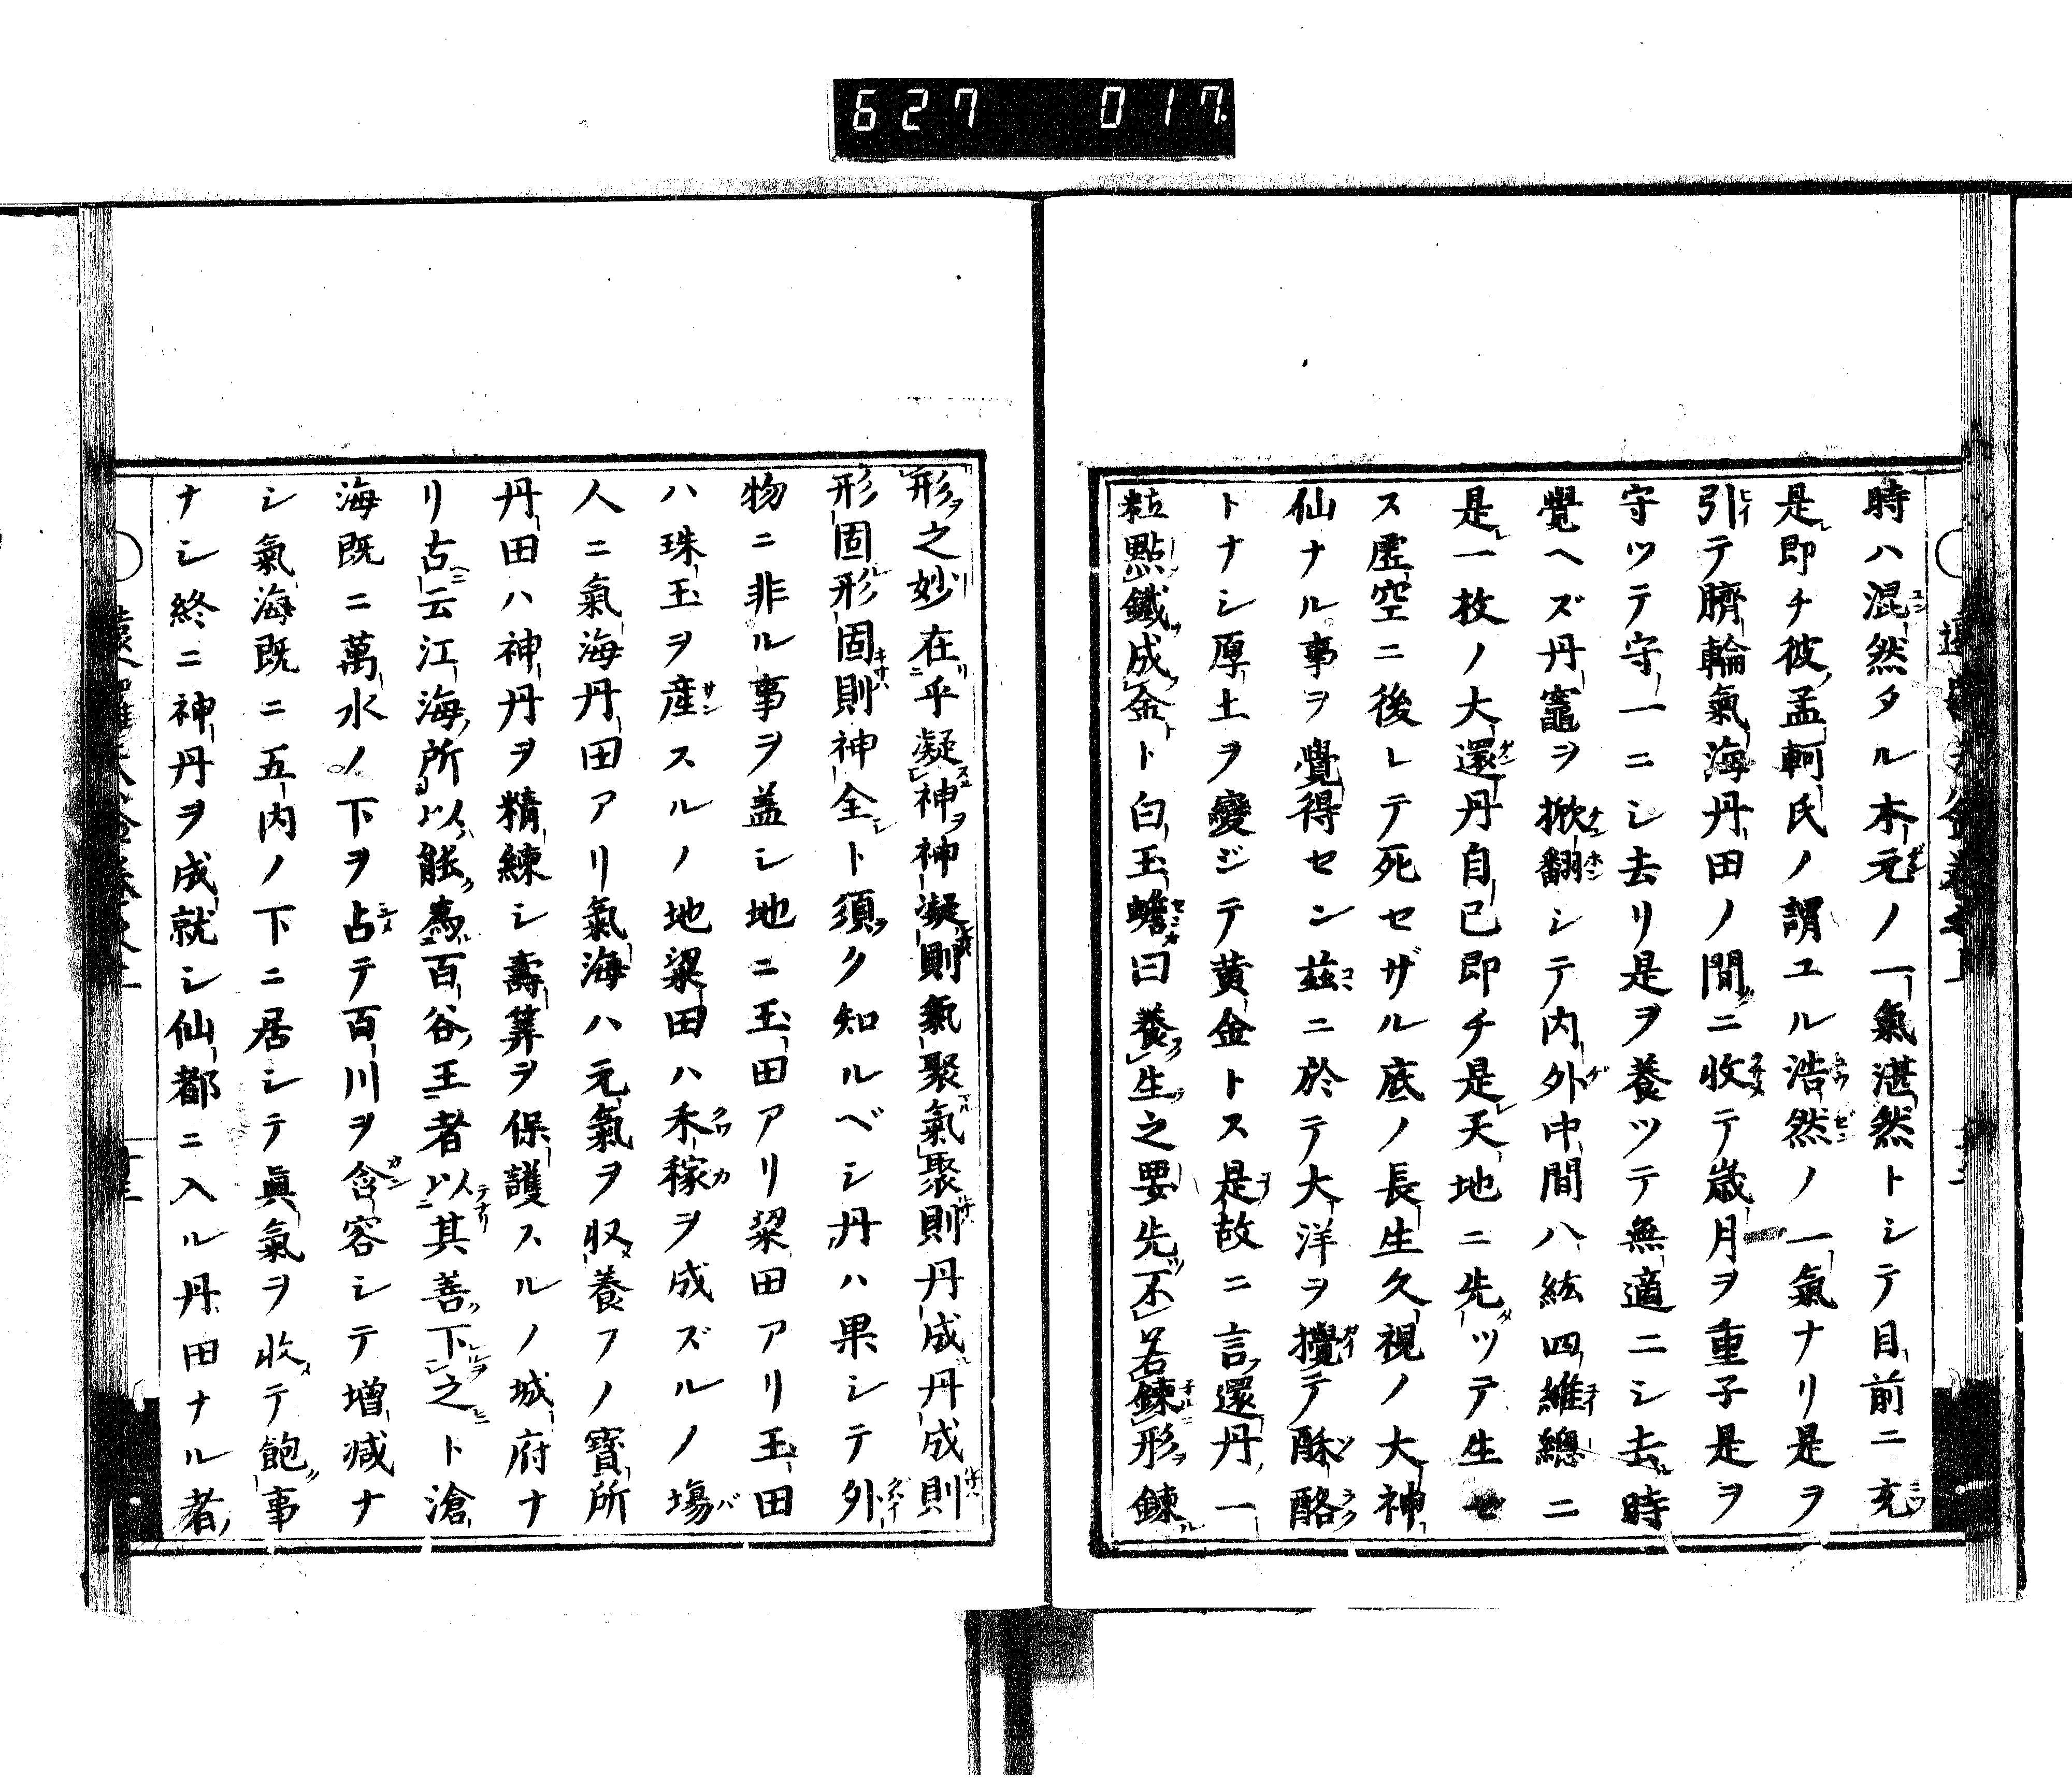 627 017
時ハ混然タル本元ノ一氣湛然トシテ目前ニ充
是即チ彼孟軻氏ノ謂ユル浩然ノ一氣ナリ是ヲ
引テ臍輪氣海丹田ノ間ニ收テ歳月ヲ重子是ヲ
守ツテ守一ニシ去リ是ヲ養ツテ無適ニシ去時
覺ヘズ丹竈ヲ掀翻シテ内外中間八紘四維總ニ
是一枚ノ大還丹自己即チ是天地ニ先ツテ生セ
ス虚空ニ後レテ死セザル底ノ長生久視ノ大神
仙ナル事ヲ覺得セン茲ニ於テ大洋ヲ攪テ酥酪
トナシ厚土ヲ變ジテ黄金トス是故ニ言還丹一
粒點鐵成金ト白玉蟾曰養生之要先不若錬形錬
形之妙在乎凝神神凝則氣聚氣聚則丹成丹成則
形固形固則神全ト須ク知ルベシ丹ハ果シテ外
物ニ非ル事ヲ盖シ地ニ玉田アリ粱田アリ玉田
ハ珠玉ヲ産スルノ地粱田ハ禾稼ヲ成ズルノ塲
人ニ氣海丹田アリ氣海ハ元氣ヲ収養フノ寳所
丹田ハ神丹ヲ精練シ壽算ヲ保護スルノ城府ナ
リ古云江海所以能爲百谷王者以其善下之ト滄
海既ニ萬水ノ下ヲ占テ百川ヲ含容シテ増減ナ
シ氣海既ニ五内ノ下ニ居シテ眞氣ヲ收テ飽事
ナシ終ニ神丹ヲ成就シ仙都ニ入ル丹田ナル者